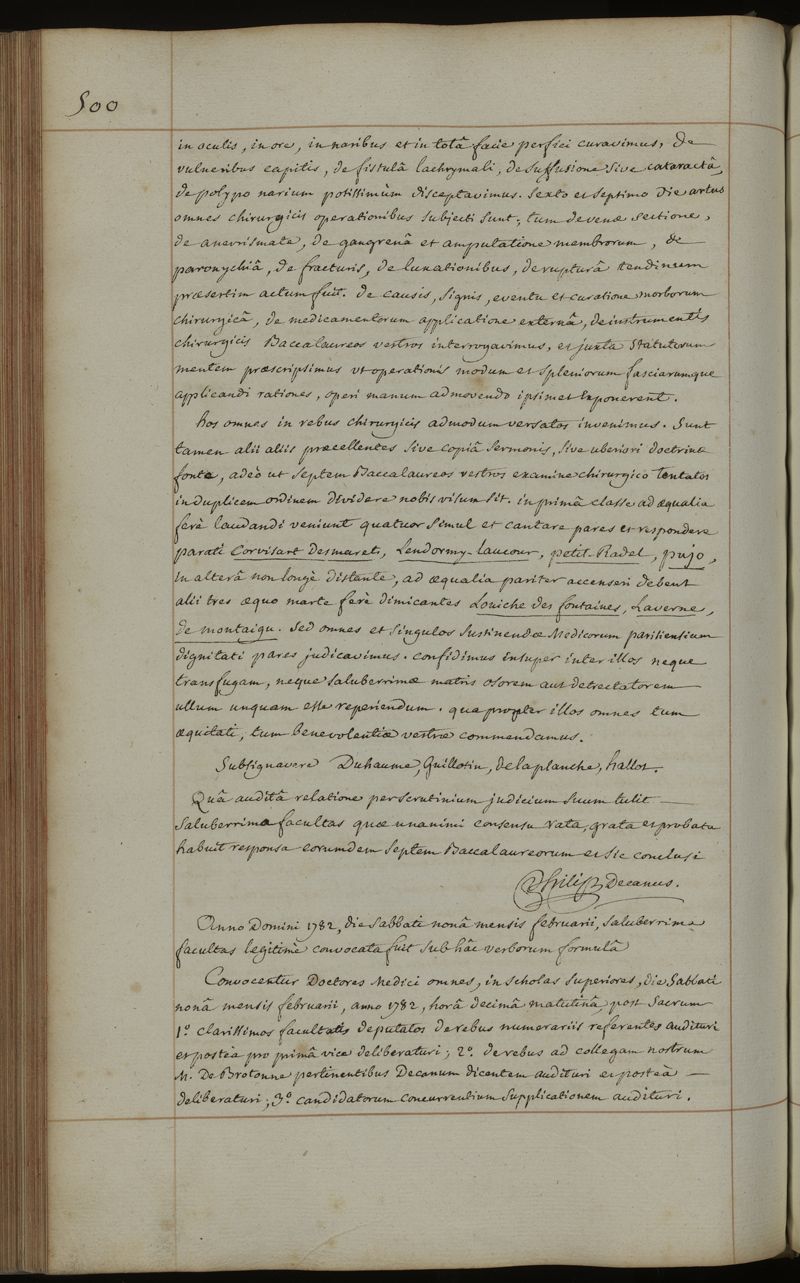 500
in oculis, in ore, in naribus et in totâ facie perfici curavimus, de
vulneribus capitis, de fistulâ lachrymali, de suffusione sive cataractâ,
de polypo narium potissimùm disceptavimus. Sexto et septimo die artus
omnes chirurgicis operationibus subjecti sunt; tum de venæ sectione,
de anevrismate, de gangrenâ et amputatione membrorum, de
paronychiâ, de fracturis, de luxationibus, de rupturâ tendinum
præsertim actum fuit. de causis, signis, eventu et curatione morborum
chirurgicâ, de medicamentorum applicatione externâ, de instrumentis
chirurgicis Baccalaureos vestros interrogavimus, et juxta Statutorum
mentem præscripsimus ut operationis modum et spleniorum fasciarumque
applicandi rationes, operi manum admovendo ipsimet exponerent.
hos omnes in rebus chirurgicis admodum versatos invenimus. Sunt
tamen alii aliis præcellentes sive copiâ sermonis, sive uberiori doctrinæ
fonte, adeò ut septem Baccalaureos vestros examine chirurgico tentatos
in duplicem ordinem dividere nobis visum sit. in primâ classe ad æqualia
ferè laudandi veniunt quatuor simul et cantare pares et respondere
parati Corvisart Desmarets, Lendormy-Laucour, petit-Radel, pujo,
in alterâ non longè distante, ad æqualia pariter accenseri debent
alii tres æquo marte ferè dimicantes Louiche des fontaines, Laverne,
de montaigu. Sed omnes et singulos sustinendæ Medicorum parisiensium
dignitati pares judicavimus. confidimus insuper inter illos neque
transfugam, neque saluberrimæ matris osorem aut detrectatorem
ullum unquam esse reperiendum. quapropter illos omnes tum
æquitati, tum benevolentiæ vestræ commendamus.
Subsignavere Duhaume, Guillotin, de laplanche, hallot.
Quâ auditâ relatione per scrutinium judicium suum tulit
saluberrima facultas quæ unanimi consensu rata, grata et probata
habuit responsa eorumdem septem Baccalaureorum et sic conclusi
Philip Decanus.
Anno Domini 1782, die Sabbati nonâ mensis februarii, saluberrima
facultas legitimè convocata fuit sub hâc verborum formulâ
Convocentur Doctores Medici omnes, in scholas superiores, die Sabbati
nonâ mensis februarii, anno 1782, horâ decimâ matutinâ, post Sacrum
1.º clarissimos facultatis deputatos de rebus numerariis referentes audituri
et posteà pro primâ vice deliberaturi; 2.º de rebus ad collegam nostrum
M. De Brotonne pertinentibus Decanum dicentem audituri et posteà
deliberaturi; 3.º candidatorum concurrentium supplicationem audituri.